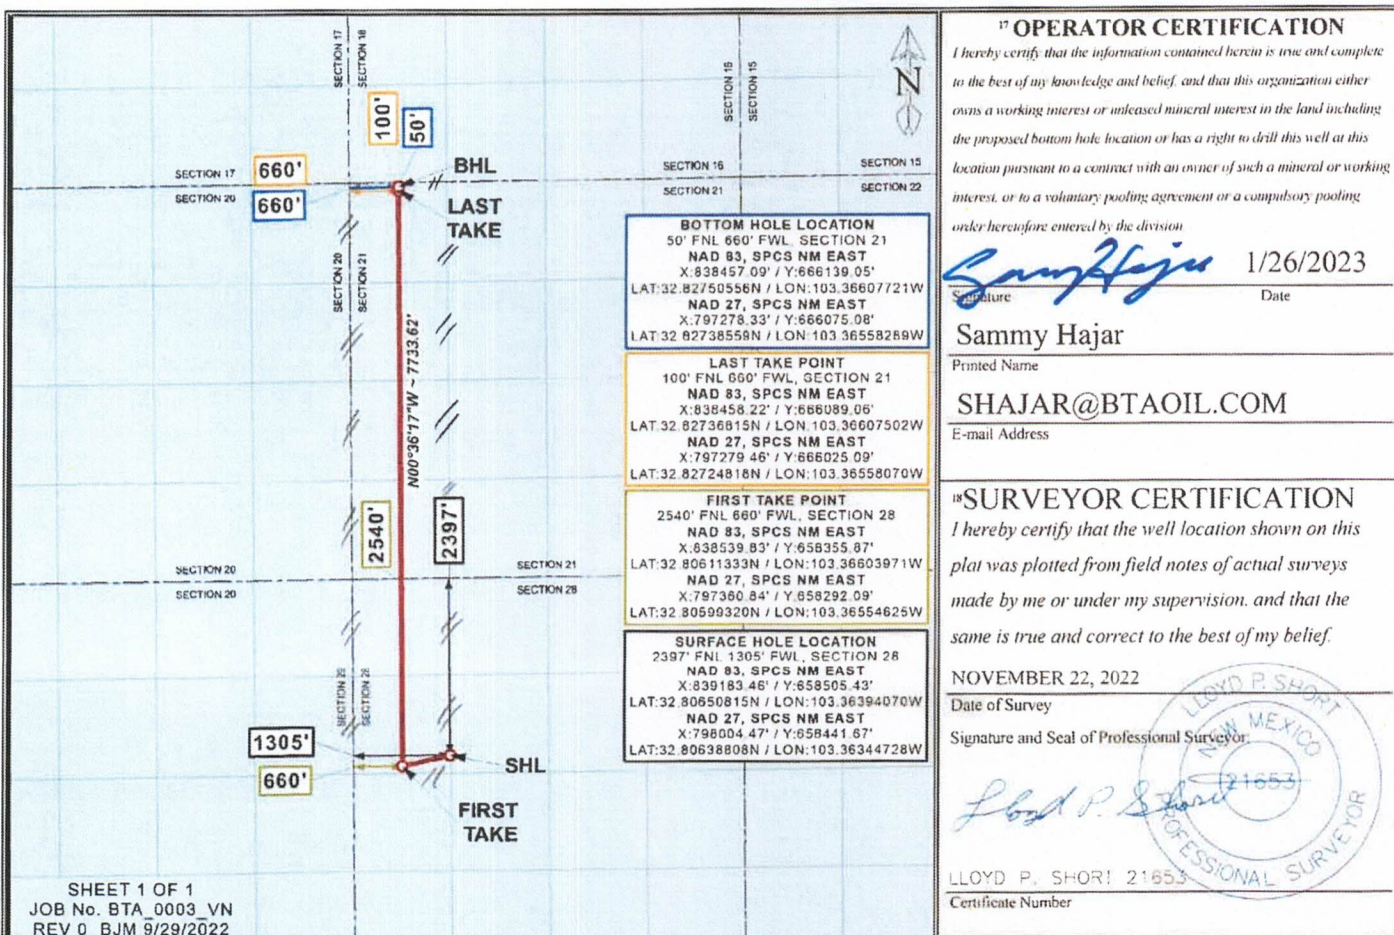 SECTION 17
SECTION 16
SECTION 16
SECTION 15
N
100'
50'
SECTION 17
660'
SECTION 20
660'
BHL
LAST
TAKE
SECTION 16
SECTION 15
SECTION 21
SECTION 22
SECTION 20
SECTION 21
N00°36'17"W ~ 7733.62'
2540'
2397'
SECTION 20
SECTION 20
SECTION 21
SECTION 28
SECTION 29
SECTION 28
1305'
660'
SHL
FIRST
TAKE
SHEET 1 OF 1
JOB No. BTA_0003_VN
REV 0 BJM 9/29/2022
BOTTOM HOLE LOCATION
50' FNL 660' FWL, SECTION 21
NAD 83, SPCS NM EAST
X:838457.09' / Y:666139.05'
LAT:32.82750556N / LON:103.36607721W
NAD 27, SPCS NM EAST
X:797278.33' / Y:666075.08'
LAT:32.82738559N / LON:103.36558289W
LAST TAKE POINT
100' FNL 660' FWL, SECTION 21
NAD 83, SPCS NM EAST
X:838458.22' / Y:666089.06'
LAT:32.82736815N / LON:103.36607502W
NAD 27, SPCS NM EAST
X:797279.46' / Y:666025.09'
LAT:32.82724818N / LON:103.36558070W
FIRST TAKE POINT
2540' FNL 660' FWL, SECTION 28
NAD 83, SPCS NM EAST
X:838539.83' / Y:658355.87'
LAT:32.80611333N / LON:103.36603971W
NAD 27, SPCS NM EAST
X:797360.84' / Y:658292.09'
LAT:32.80599320N / LON:103.36554625W
SURFACE HOLE LOCATION
2397' FNL 1305' FWL, SECTION 28
NAD 83, SPCS NM EAST
X:839183.46' / Y:658505.43'
LAT:32.80650815N / LON:103.36394070W
NAD 27, SPCS NM EAST
X:798004.47' / Y:658441.67'
LAT:32.80638808N / LON:103.36344728W
17 OPERATOR CERTIFICATION
I hereby certify that the information contained herein is true and complete
to the best of my knowledge and belief, and that this organization either
owns a working interest or unleased mineral interest in the land including
the proposed bottom hole location or has a right to drill this well at this
location pursuant to a contract with an owner of such a mineral or working
interest, or to a voluntary pooling agreement or a compulsory pooling
order heretofore entered by the division.
Sammy Hajar 1/26/2023
Signature Date
Sammy Hajar
Printed Name
SHAJAR@BTAOIL.COM
E-mail Address
18 SURVEYOR CERTIFICATION
I hereby certify that the well location shown on this
plat was plotted from field notes of actual surveys
made by me or under my supervision, and that the
same is true and correct to the best of my belief.
NOVEMBER 22, 2022
Date of Survey
Signature and Seal of Professional Surveyor:
Lloyd P. Short
LLOYD P. SHORT
NEW MEXICO
21653
PROFESSIONAL SURVEYOR
LLOYD P. SHORT 21653
Certificate Number